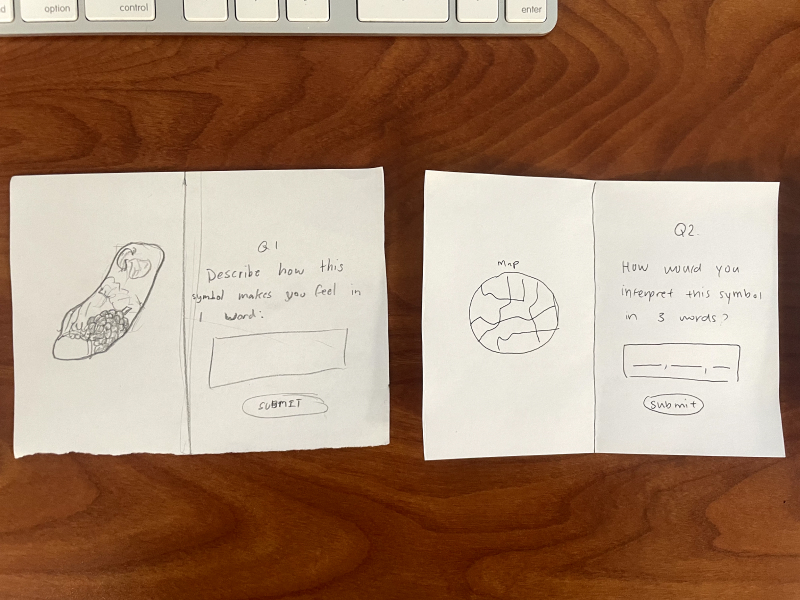 option
control
enter
Q1
Describe how this
symbol makes you feel in
1 word:
SUBMIT
Map
Q2.
How would you
interpret this symbol
in 3 words?
submit